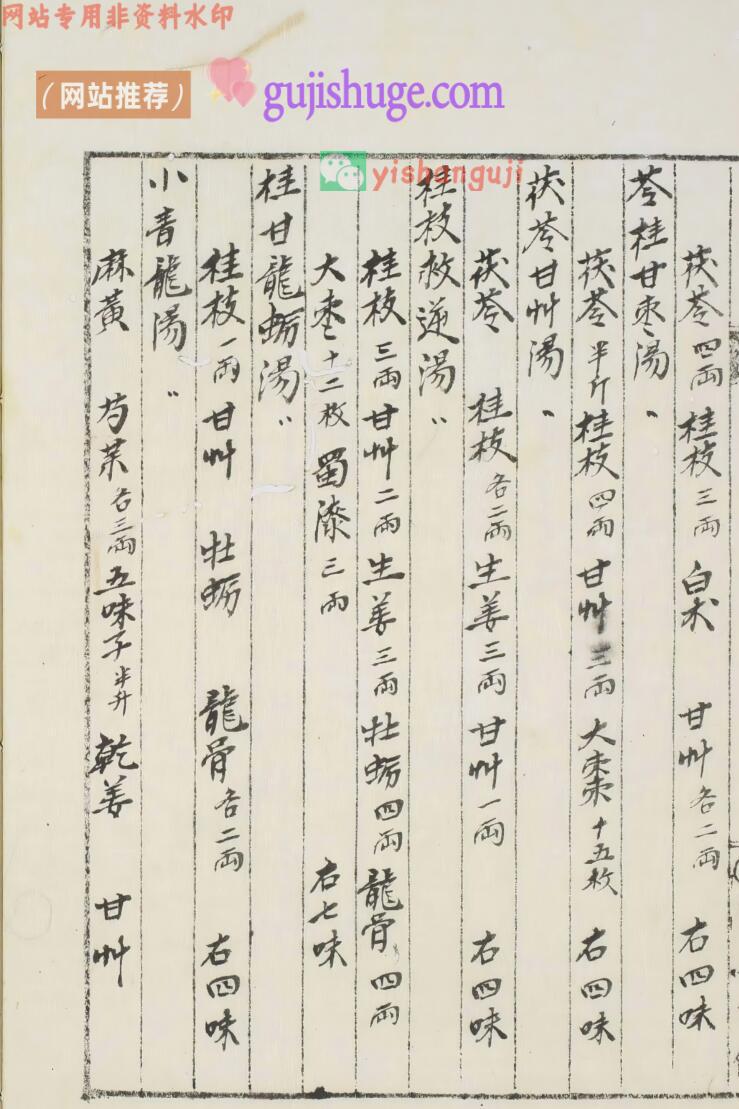 网站专用非资料水印
（网站推荐）
gujishuge.com
yishanguji
茯苓四兩 桂枝三兩 白朮 甘艸各二兩 右四味
苓桂甘枣湯〃
茯苓半斤桂枝四兩 甘艸三兩 大棗十五枚 右四味
茯苓甘艸湯〃
茯苓 桂枝各二兩生姜三兩甘艸一兩 右四味
桂枝救逆湯〃
桂枝三兩甘艸二兩生姜三兩牡蛎四兩龍骨四兩
大枣十二枚 蜀漆三兩 右七味
桂甘龍蛎湯〃
桂枝一兩甘艸 牡蛎 龍骨各二兩 右四味
小青龍湯〃
麻黃 芍藥各三兩五味子半升 乾姜 甘艸